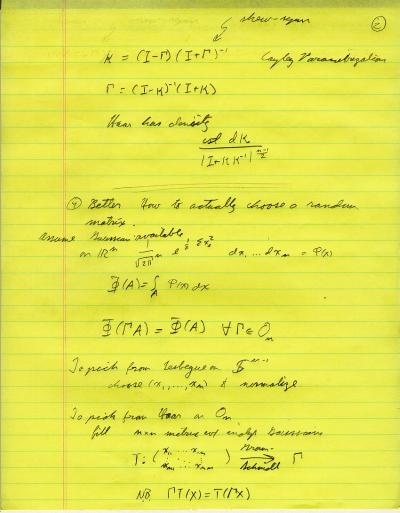 ②
skew-sym
K = (I-Γ)(I+Γ)⁻¹ Cayley Parametrization
Γ = (I-K)⁻¹(I+K)
Haar has density
cst dK
|I+KK⁻¹|^{(n-1)/2}
④ Better How to actually choose a random
matrix.
Assume Gaussian available
on ℝⁿ 1/√(2π)ⁿ e^{½ Σxᵢ²} dx₁...dxₙ = φ(x)
Φ(A) = ∫_A φ(x) dx
Φ(ΓA) = Φ(A) ∀ Γ ∈ Oₙ
To pick from Lebesgue on Sⁿ⁻¹
choose (x₁,...,xₙ) & normalize
To pick from Haar on Oₙ
fill n×n matrix w/ indep Gaussians
T: (x₁₁ ... x₁ₙ
xₙ₁ ... xₙₙ) Gram-Schmidt → Γ
NB ΓT(X) = T(ΓX)